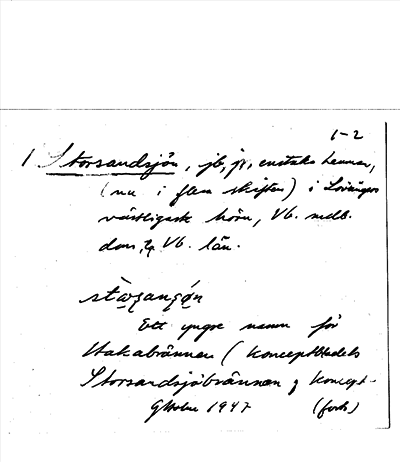 1-2
1 Storsandsjön, jb, jr, enstaka hemman,
(nu i flera skiften) i Lövångers
västligaste hörn, Vb. medb.
doms, Vb. län.
Ett yngre namn för
Stakabrännan (konceptbladets
Storsandsjöbrännan; koncept-
1947 (forts)